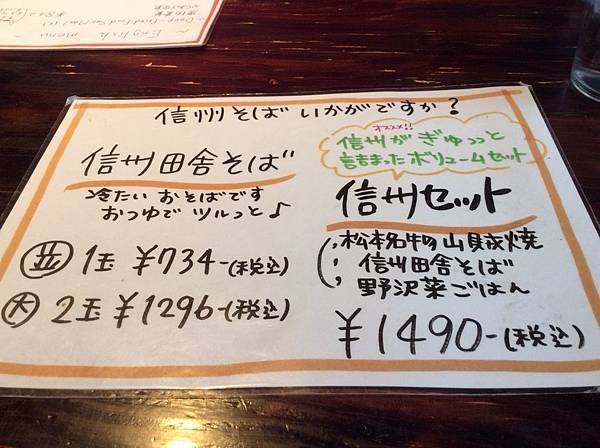 信州そばいかがですか?
信州田舎そば
冷たいおそばです
おつゆでツルっと♪
並 1玉 ¥734-(税込)
大 2玉 ¥1296-(税込)
オススメ!!
信州がぎゅっっと
詰まったボリュームセット
信州セット
松本名物の山賊焼
信州田舎そば
野沢菜ごはん
¥1490-(税込)
~ English menu ~